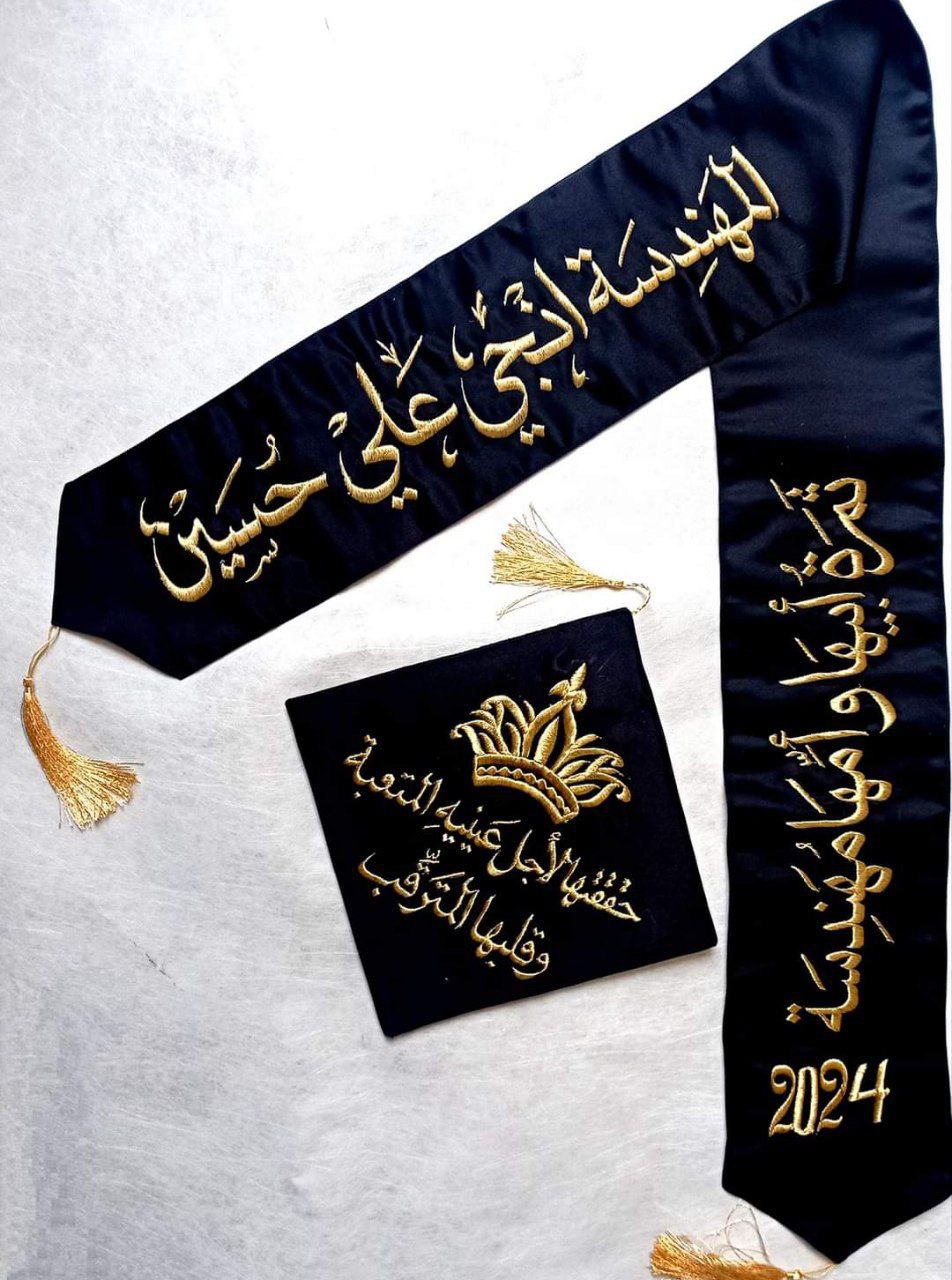 المهندسة انجي علي حسين
ثمرة أبيها وأمها مهندسة
2024
حققتها لأجل عينيه المتعبة
وقلبها المترقب